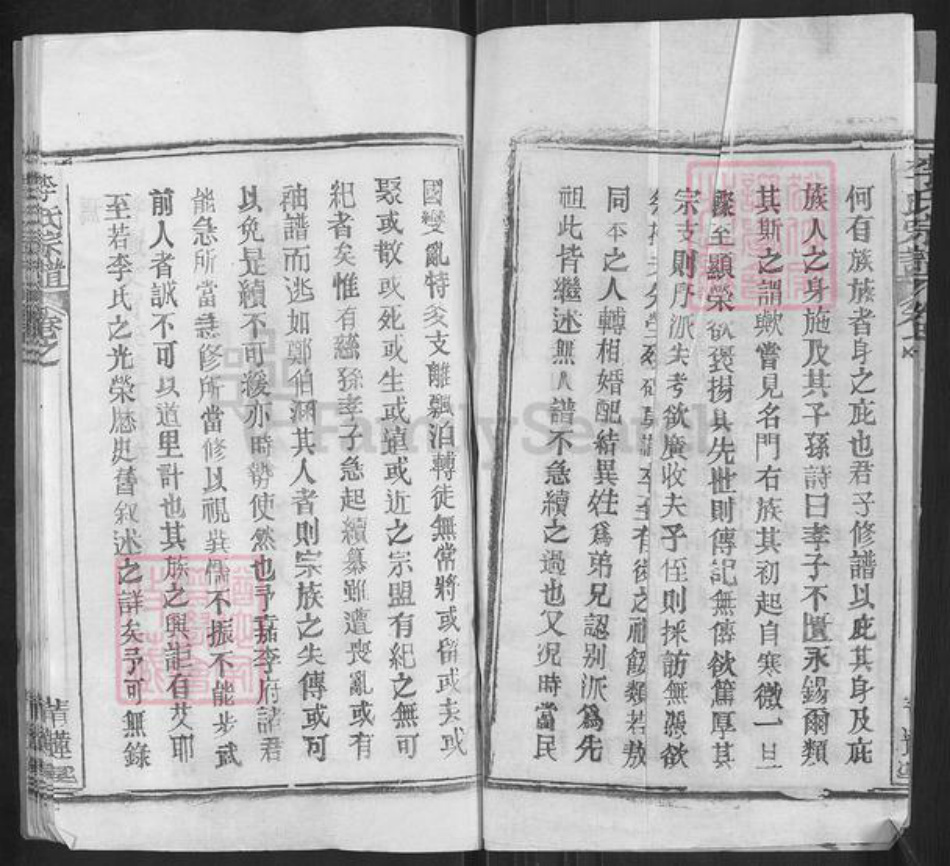 何有族族者身之庇也君子修譜以庇其身及庇
族人之身施及其子孫詩曰孝子不匱永錫爾類
其斯之謂歟嘗見名門右族其初起自寒微一旦
驟至顯榮欲褒揚其先世則傳記無傳欲篤厚其
宗支則序派失考欲廣收夫子侄則採訪無憑欲
至有後之祀餒類若敖
同本之人轉相婚配結異姓爲弟兄認别派爲先
祖此皆繼述無人譜不急續之過也又况時當民
國變亂特交支離飄泊轉徒無常將或留或去或
聚或散或死或生或遠或近之宗盟有紀之無可
紀者矣惟有慈孫孝子急起續纂雖遭喪亂或有
袖譜而逃如鄭伯涵其人者則宗族之失傳或可
以免是續不可緩亦時勢使然也予嘉李府諸君
能急所當急修所當修以視巽懦不振不能步武
前人者誠不可以道里計也其族之興詎有艾耶
至若李氏之光榮歷史舊叙述之詳矣予可無錄
李氏宗譜
卷之
青蓮堂
李氏宗譜
卷之
FamilySearch